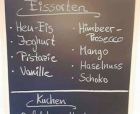 Eissorten
• Heu-Eis
• Joghurt
• Pistazie
• Vanille
• Himbeer-
Prosecco
• Mango
• Haselnuss
• Schoko
Kuchen